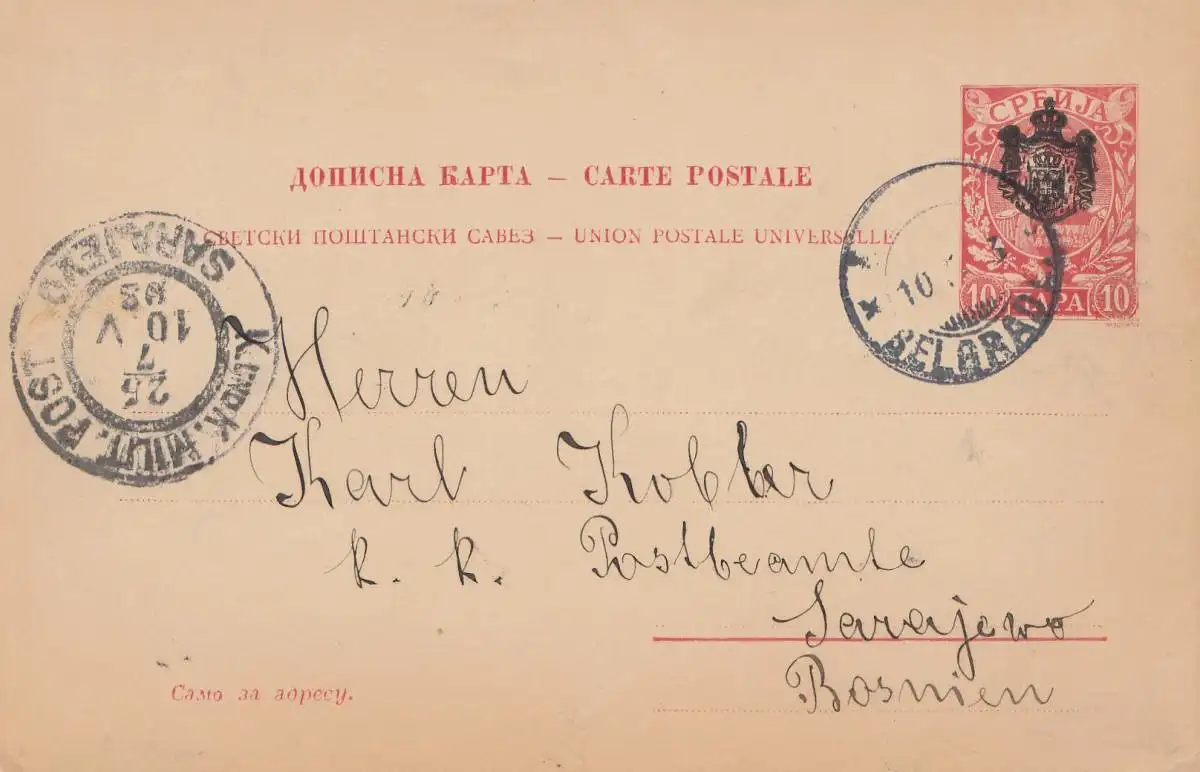 СРБИЈА
10 ПАРА 10
ДОПИСНА КАРТА — CARTE POSTALE
СВЕТСКИ ПОШТАНСКИ САВЕЗ — UNION POSTALE UNIVERSELLE
BELGRADE
10
3
K. UND K. MILIT. POST
SARAJEVO
25
7
10 V
Herren
Karl Kobler
k. k. Postbeamte
Sarajewo
Bosnien
Само за адресу.